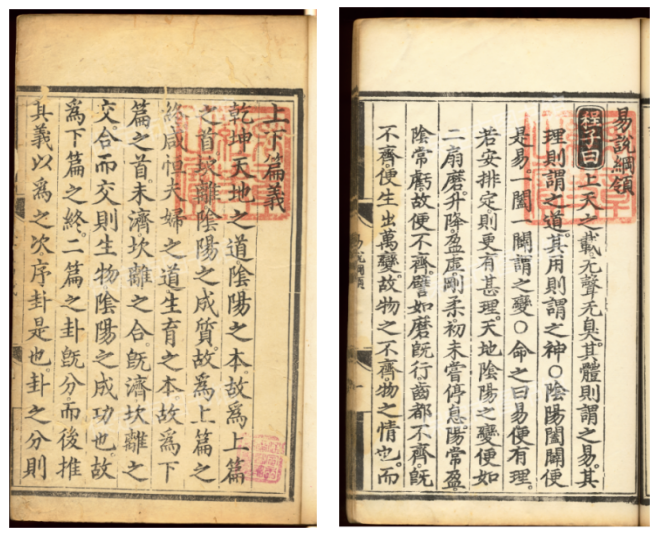 上下篇義
乾坤天地之道陰陽之本故爲上篇
之首坎離陰陽之成質故爲上篇之
終咸恒夫婦之道生育之本故爲下
篇之首未濟坎離之合旣濟坎離之
交合而交則生物陰陽之成功也故
爲下篇之終二篇之卦旣分而後推
其義以爲之次序卦是也卦之分則
易說綱領
程子曰上天之載无聲无臭其體則謂之易其
理則謂之道其用則謂之神○陰陽闔闢便
是易一闔一闢謂之變○命之曰易便有理
若安排定則更有甚理天地陰陽之變便如
二扇磨升降盈虛剛柔初未嘗停息陽常盈
陰常虧故便不齊譬如磨旣行齒都不齊旣
不齊便生出萬變故物之不齊物之情也而
易說綱領